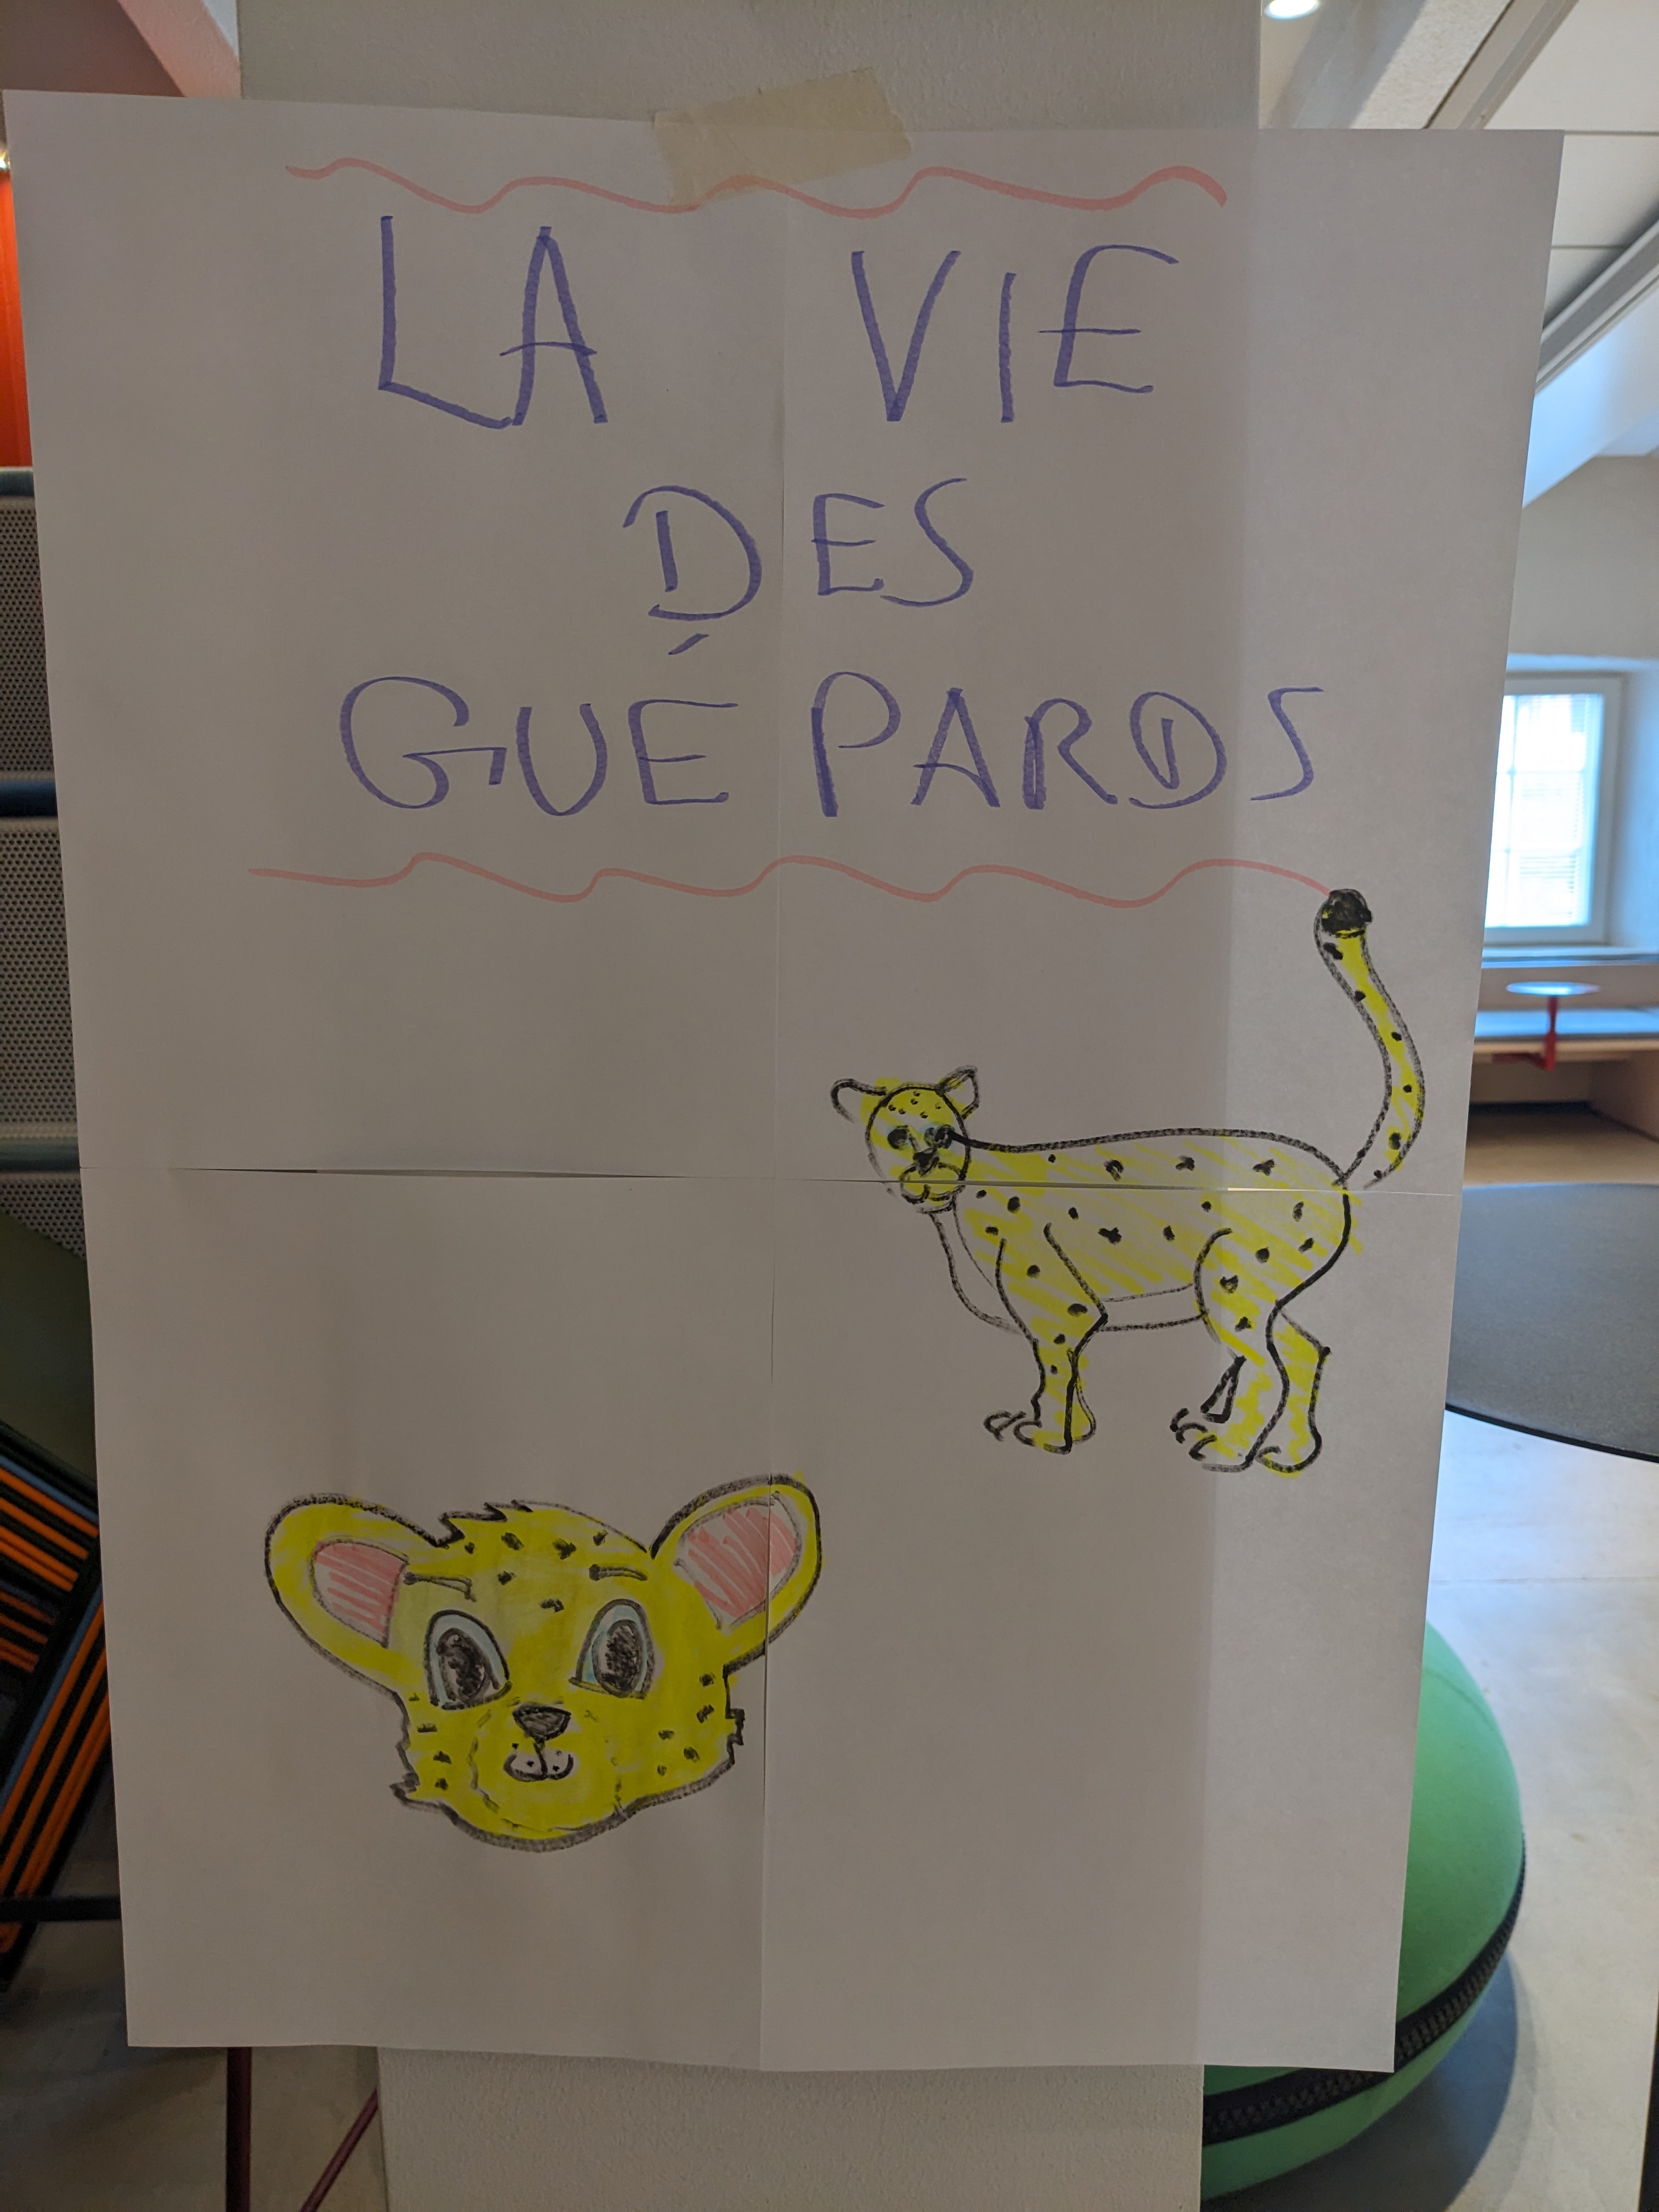 LA VIE
DES
GUÉPARDS